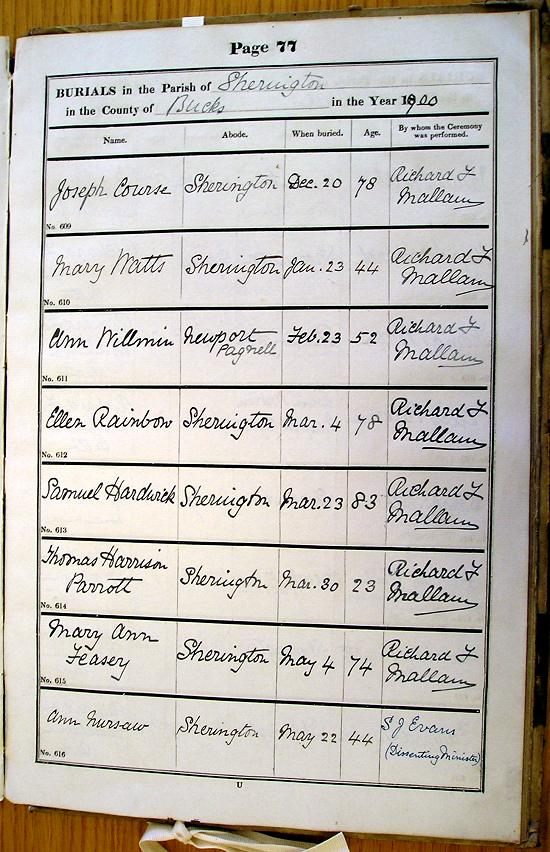 Page 77
BURIALS in the Parish of Sherington
in the County of Bucks in the Year 1900
Name. Abode. When buried. Age. By whom the Ceremony was performed.
Joseph Course Sherington Dec. 20 78 Richard F
Mallam
No. 609
Mary Watts Sherington Jan. 23 44 Richard F
Mallam
No. 610
Ann Willmin Newport Feb. 23 52 Richard F
Pagnell Mallam
No. 611
Ellen Rainbow Sherington Mar. 4 78 Richard F
Mallam
No. 612
Samuel Hardwick Sherington Mar. 23 83 Richard F
Mallam
No. 613
Thomas Harrison Richard F
Parrott Sherington Mar. 30 23 Mallam
No. 614
Mary Ann Richard F
Feasey Sherington May 4 74 Mallam
No. 615
Ann Nursaw Sherington May 22 44 S J Evans
(Dissenting Minister)
No. 616
U